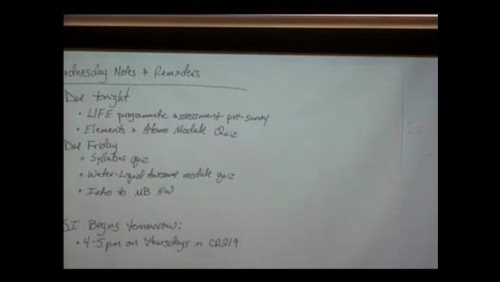 ednesday Notes & Reminders
Due tonight
• LIFE programmatic assessment pre-survey
• Elements & Atoms Module Quiz
Due Friday
• Syllabus quiz
• Water-Liquid Awesome module quiz
• Intro to MB HW
S.I. Begins tomorrow:
• 4-5pm on Thursdays in CR219